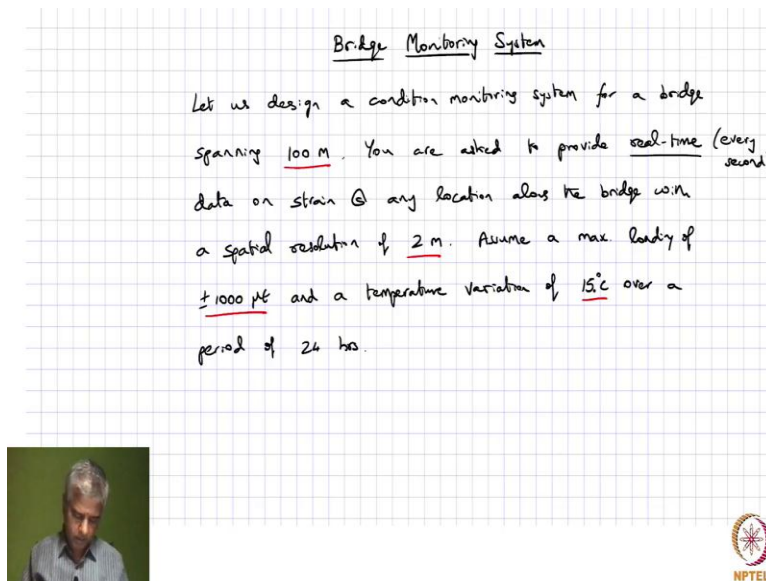 Bridge Monitoring System
Let us design a condition monitoring system for a bridge
spanning 100 M. You are asked to provide real-time (every
second
data on strain @ any location along the bridge with
a spatial resolution of 2 m. Assume a max. loading of
± 1000 µε and a temperature variation of 15°C over a
period of 24 hrs.
NPTEL